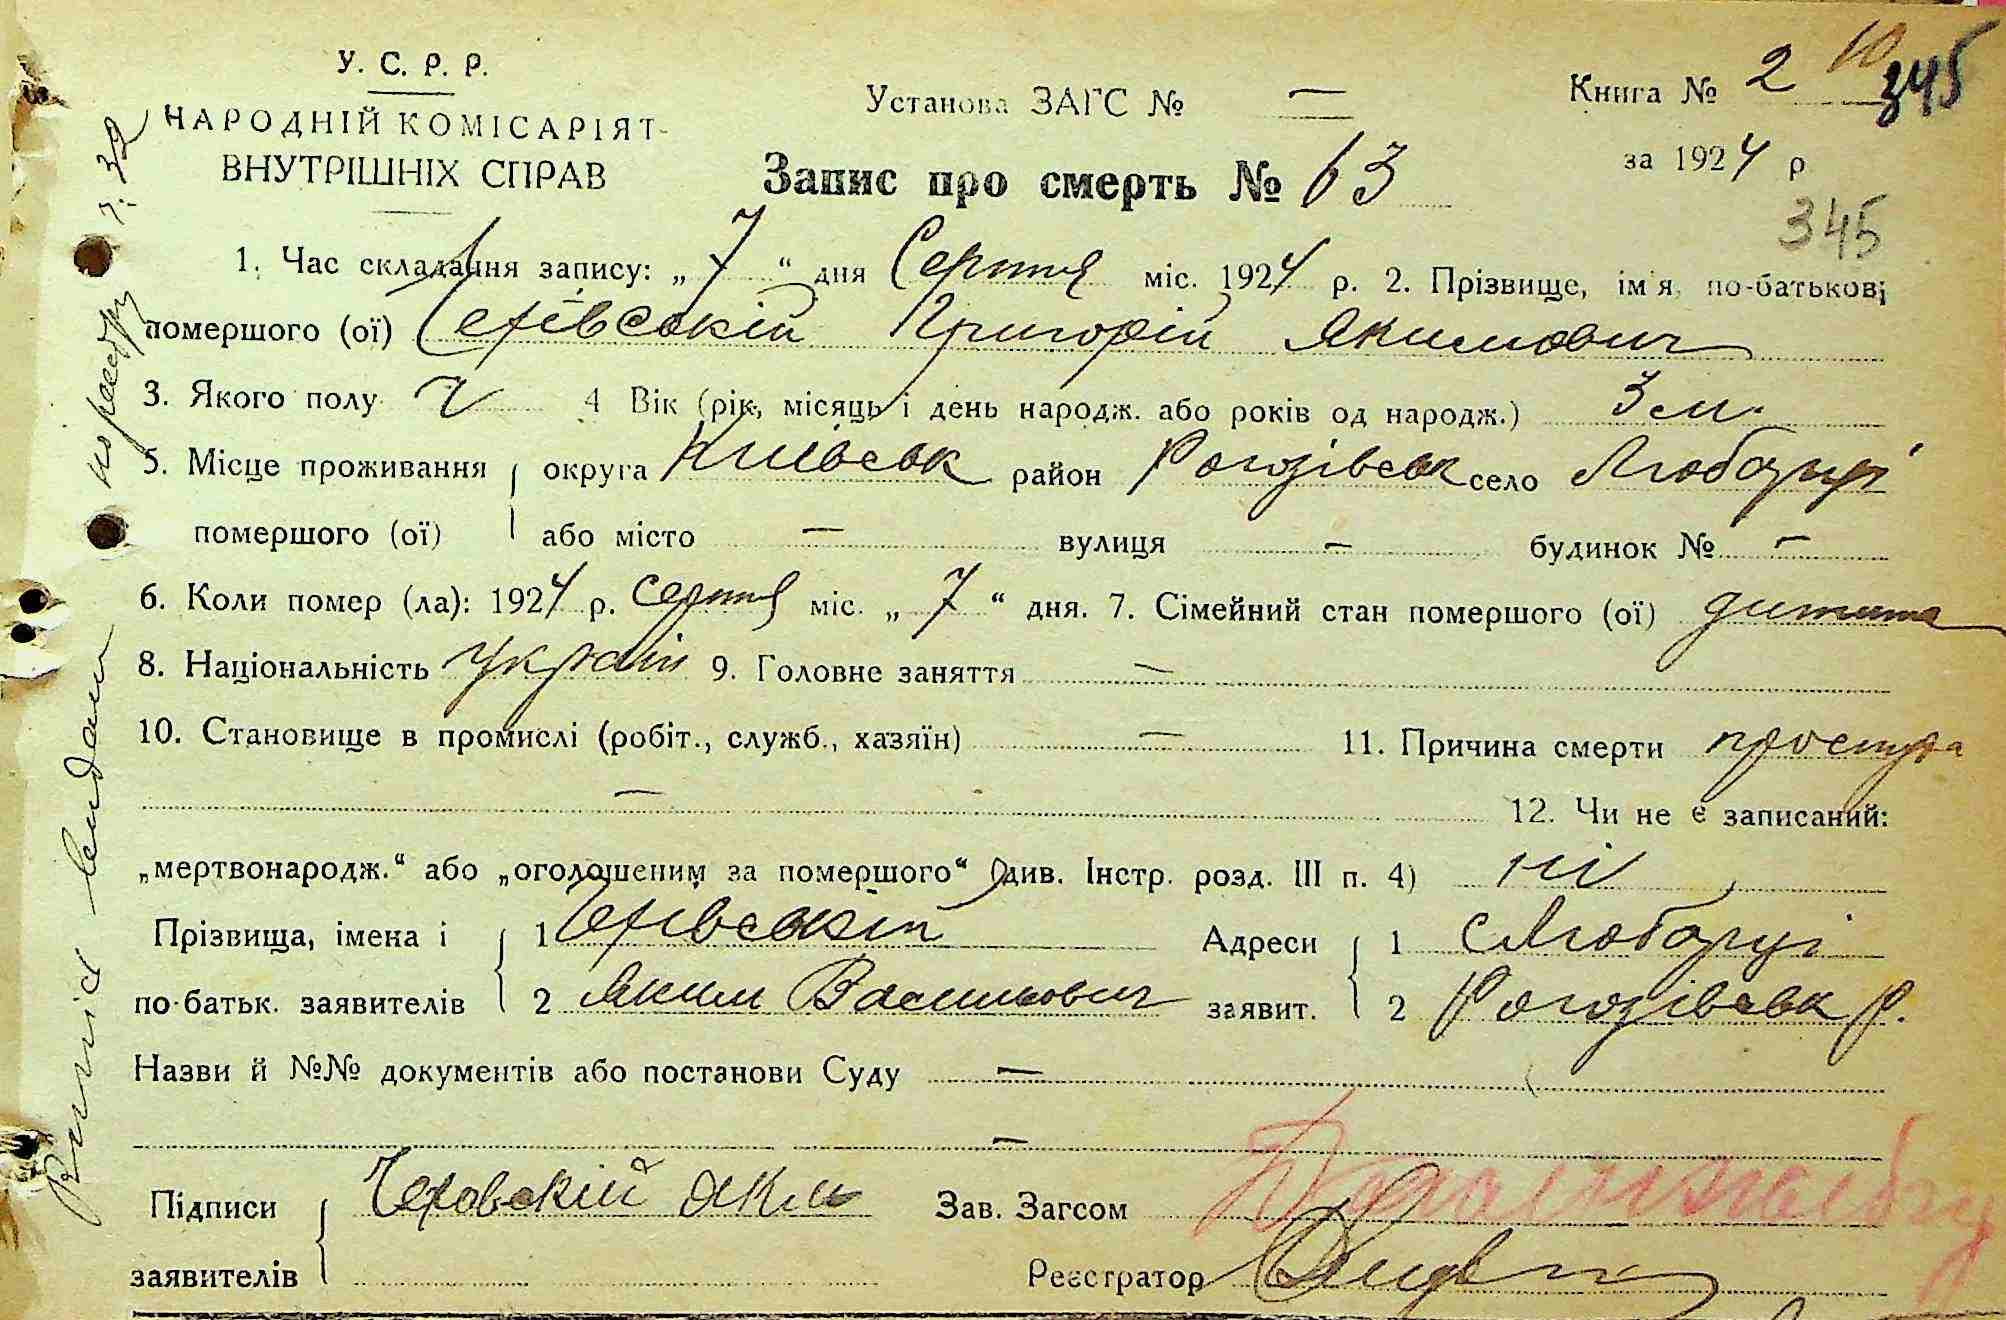 У. С. Р. Р.
НАРОДНІЙ КОМІСАРІЯТ
ВНУТРІШНІХ СПРАВ
Установа ЗАГС № —
Книга № 2
345
за 1924 р
345
Запис про смерть № 63
1. Час складання запису: „7“ дня Серпня міс. 1924 р. 2. Прізвище, ім'я, по-батькові
помершого (ої) Григорій Якимович
3. Якого полу ч 4 Вік (рік, місяць і день народж. або років од народж.) 3 м.
5. Місце проживання округа Київськ район Рогозівськ село Любарці
помершого (ої) або місто — вулиця — будинок № —
6. Коли помер (ла): 1924 р. серпня міс. „7“ дня. 7. Сімейний стан помершого (ої) дитина
8. Національність україн 9. Головне заняття —
10. Становище в промислі (робіт., служб., хазяїн) — 11. Причина смерти простуда
— 12. Чи не є записаний:
„мертвонародж.“ або „оголошеним за помершого“ (див. Інстр. розд. III п. 4) ні
Прізвища, імена і 1 Адреси 1 с Любарці
по-батьк. заявителів 2 Яким Васильович заявит. 2 Рогозівськ р.
Назви й №№ документів або постанови Суду —
—
Підписи Яким Зав. Загсом
заявителів Реєстратор